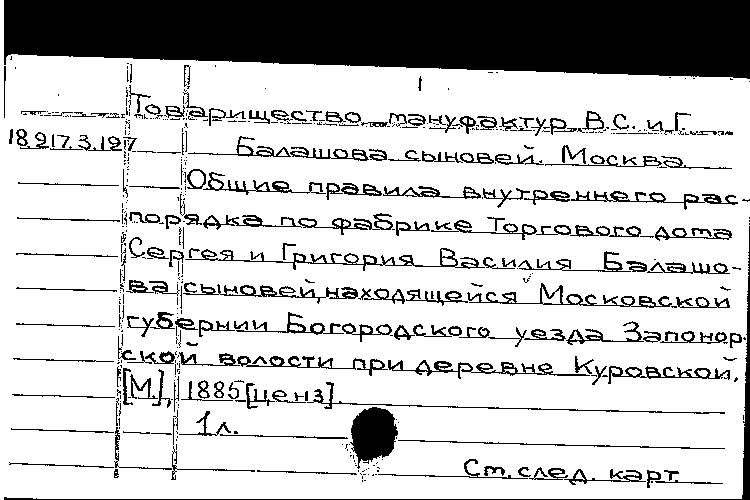 1
Товарищество мануфактур В.С. и Г.
18.217.3.197 Балашова сыновей. Москва
Общие правила внутреннего рас-
порядка по фабрике Торгового дома
Сергея и Григория Василия Балашо-
ва сыновей, находящейся Московской
губернии Богородского уезда Запонор-
ской волости при деревне Куровской.
[М.], 1885 [ценз].
1 л.
См. след. карт.